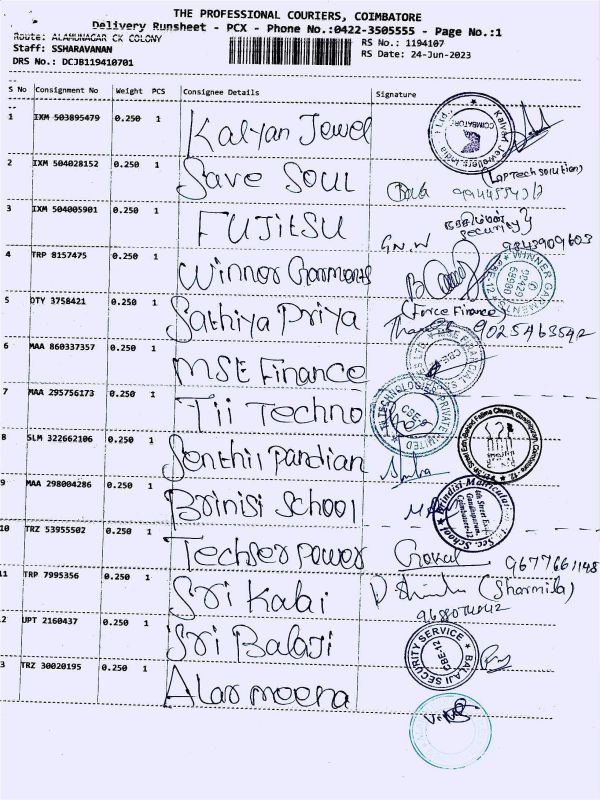 THE PROFESSIONAL COURIERS, COIMBATORE
Delivery Runsheet - PCX - Phone No.:0422-3505555 - Page No.:1
Route: ALAMUNAGAR CK COLONY
RS No.: 1194107
Staff: SSHARAVANAN
RS Date: 24-Jun-2023
DRS No.: DCJB119410701
S No Consignment No Weight PCS Consignee Details Signature
1 IXM 503895479 0.250 1 Kalyan Jewel
COIMBATORE
2 IXM 504028152 0.250 1 Save Soul
(LapTech solution)
3 IXM 504005901 0.250 1 FUJITSU
security
G.N.W 9843909603
4 TRP 8157475 0.250 1 Winner Garments
WINNER GARMENTS CBE-12
5 QTY 3758421 0.250 1 Sathiya Priya
(Force Finance)
9025463542
6 MAA 860337357 0.250 1 MSE Finance
CBE
7 MAA 295756173 0.250 1 Tii Techno
TECHNOLOGIES PRIVATE LIMITED
CBE
8 SLM 322662106 0.250 1 Senthil pandian
9 MAA 298004286 0.250 1 Brinisi School
Brindisi Matriculation Hr. Sec. School
10 TRZ 53955502 0.250 1 Techser power
Gokul 9677661148
11 TRP 7995356 0.250 1 Sri Kalai
(Sharmila)
2 UPT 2160437 0.250 1 Sri Balaji
BALAJI SECURITY SERVICE
CBE-12
3 TRZ 30020195 0.250 1 Alarmeena